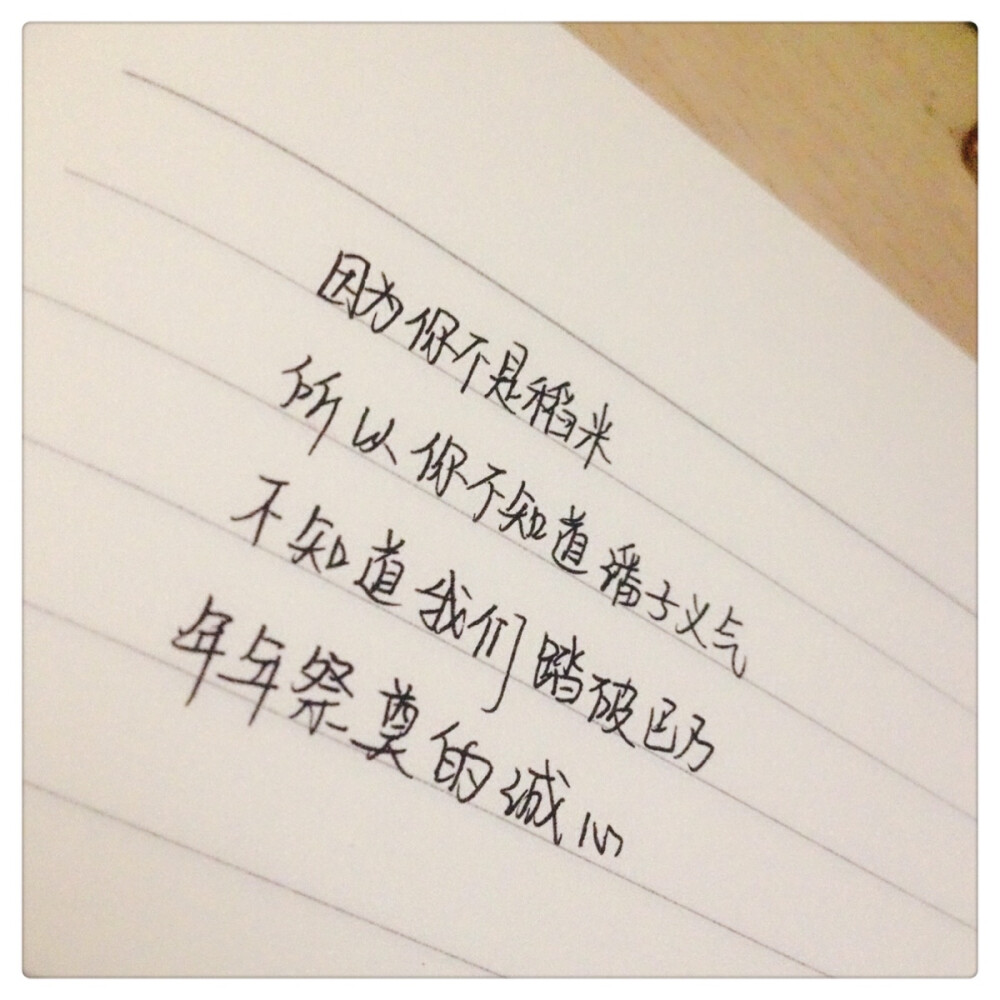 因为你不是稻米
所以你不知道潘子义气
不知道我们踏破巴乃
年年祭奠的诚心